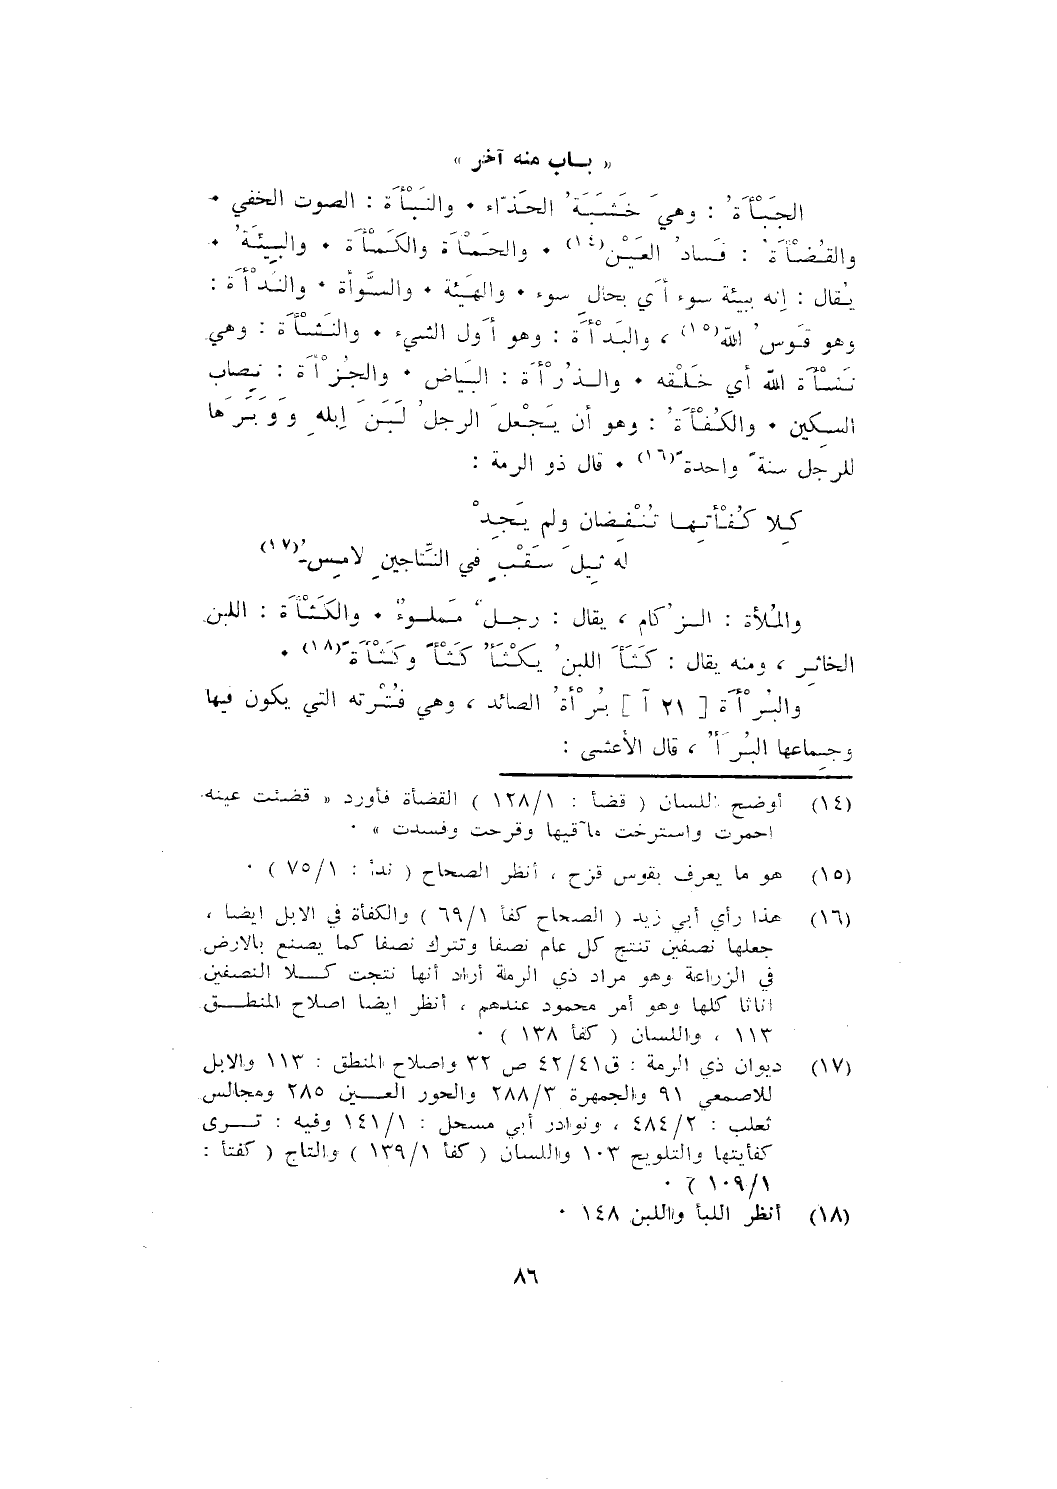 « بـاب منه آخر »
الجَبْأَةُ : وهيَ خَشَبَةُ الحَذّاء • والنَبْأَة : الصوت الخفي •
والقُضْأَةُ : فَسادُ العَيْنِ(١٤) • والحَمْأَة والكَمْأَة • والبِيئَةُ •
يُقال : إنه بيئة سوء أي بحالِ سوء • والهَيْئة • والسَّوأة • والنَدْأَة :
وهو قَوسُ اللّه(١٥) ، والبَدْأَة : وهو أَول الشيء • والنَشْأَة : وهي
نَشْأَة اللّه أي خَلْقه • والـذُرْأَة : البَياض • والجُزْأَة : نِصاب
السكين • والكُفْأَةُ : وهو أن يَجْعلَ الرجلُ لَبَنَ إبلهِ وَوَبَرَها
للرجل سنةً واحدةً(١٦) • قال ذو الرمة :
كِلا كُفْأَتيها تُنْفِضان ولم يَجِدْ
له ثِيلَ سَقْبٍ في النِّتاجينِ لامِسُ(١٧)
والمُلأة : الـزُكام ، يقال : رجـلٌ مَملوءٌ • والكَثْأَة : اللبن
الخاثـر ، ومنه يقال : كَثَأَ اللبنُ يَكْثَأُ كَثْأً وكَثْأَةً(١٨) •
والبُرْأَة [ ٢١ آ ] بُرْأَةُ الصائد ، وهي قُتْرته التي يكون فيها
وجِماعها البُرَأُ ، قال الأعشى :
(١٤) أوضح اللسان ( قضأ : ١٢٨/١ ) القضأة فأورد « قضئت عينه
احمرت واسترخت مآقيها وقرحت وفسدت » •
(١٥) هو ما يعرف بقوس قزح ، أنظر الصحاح ( ندأ : ٧٥/١ ) •
(١٦) هذا رأي أبي زيد ( الصحاح كفأ ٦٩/١ ) والكفأة في الابل ايضا ،
جعلها نصفين تنتج كل عام نصفا وتترك نصفا كما يصنع بالارض
في الزراعة وهو مراد ذي الرمة أراد أنها نتجت كـــلا النصفين
اناثا كلها وهو أمر محمود عندهم ، أنظر ايضا اصلاح المنطـــق
١١٣ ، واللسان ( كفأ ١٣٨ ) •
(١٧) ديوان ذي الرمة : ق٤٢/٤١ ص ٣٢ واصلاح المنطق : ١١٣ والابل
للاصمعي ٩١ والجمهرة ٢٨٨/٣ والحور العـــين ٢٨٥ ومجالس
ثعلب : ٤٨٤/٢ ، ونوادر أبي مسحل : ١٤١/١ وفيه : تـــرى
كفأيتها والتلويح ١٠٣ واللسان ( كفأ ١٣٩/١ ) والتاج ( كفتأ :
١٠٩/١ ) •
(١٨) أنظر اللبأ واللبن ١٤٨ •
٨٦